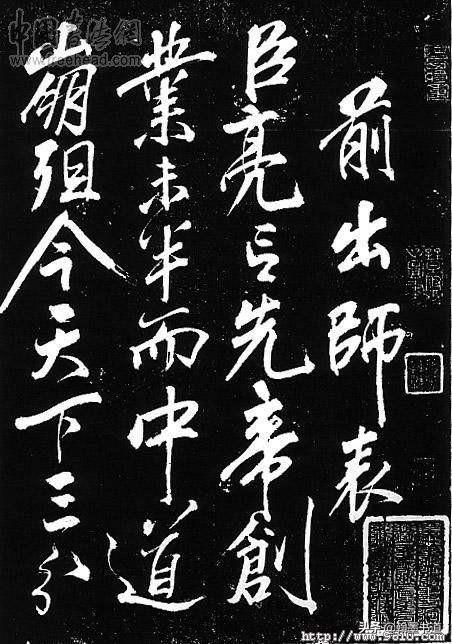 前出師表
臣亮言先帝創
業未半而中道
崩殂今天下三分
中国书法網
www.freehead.com
http://www.5810.com